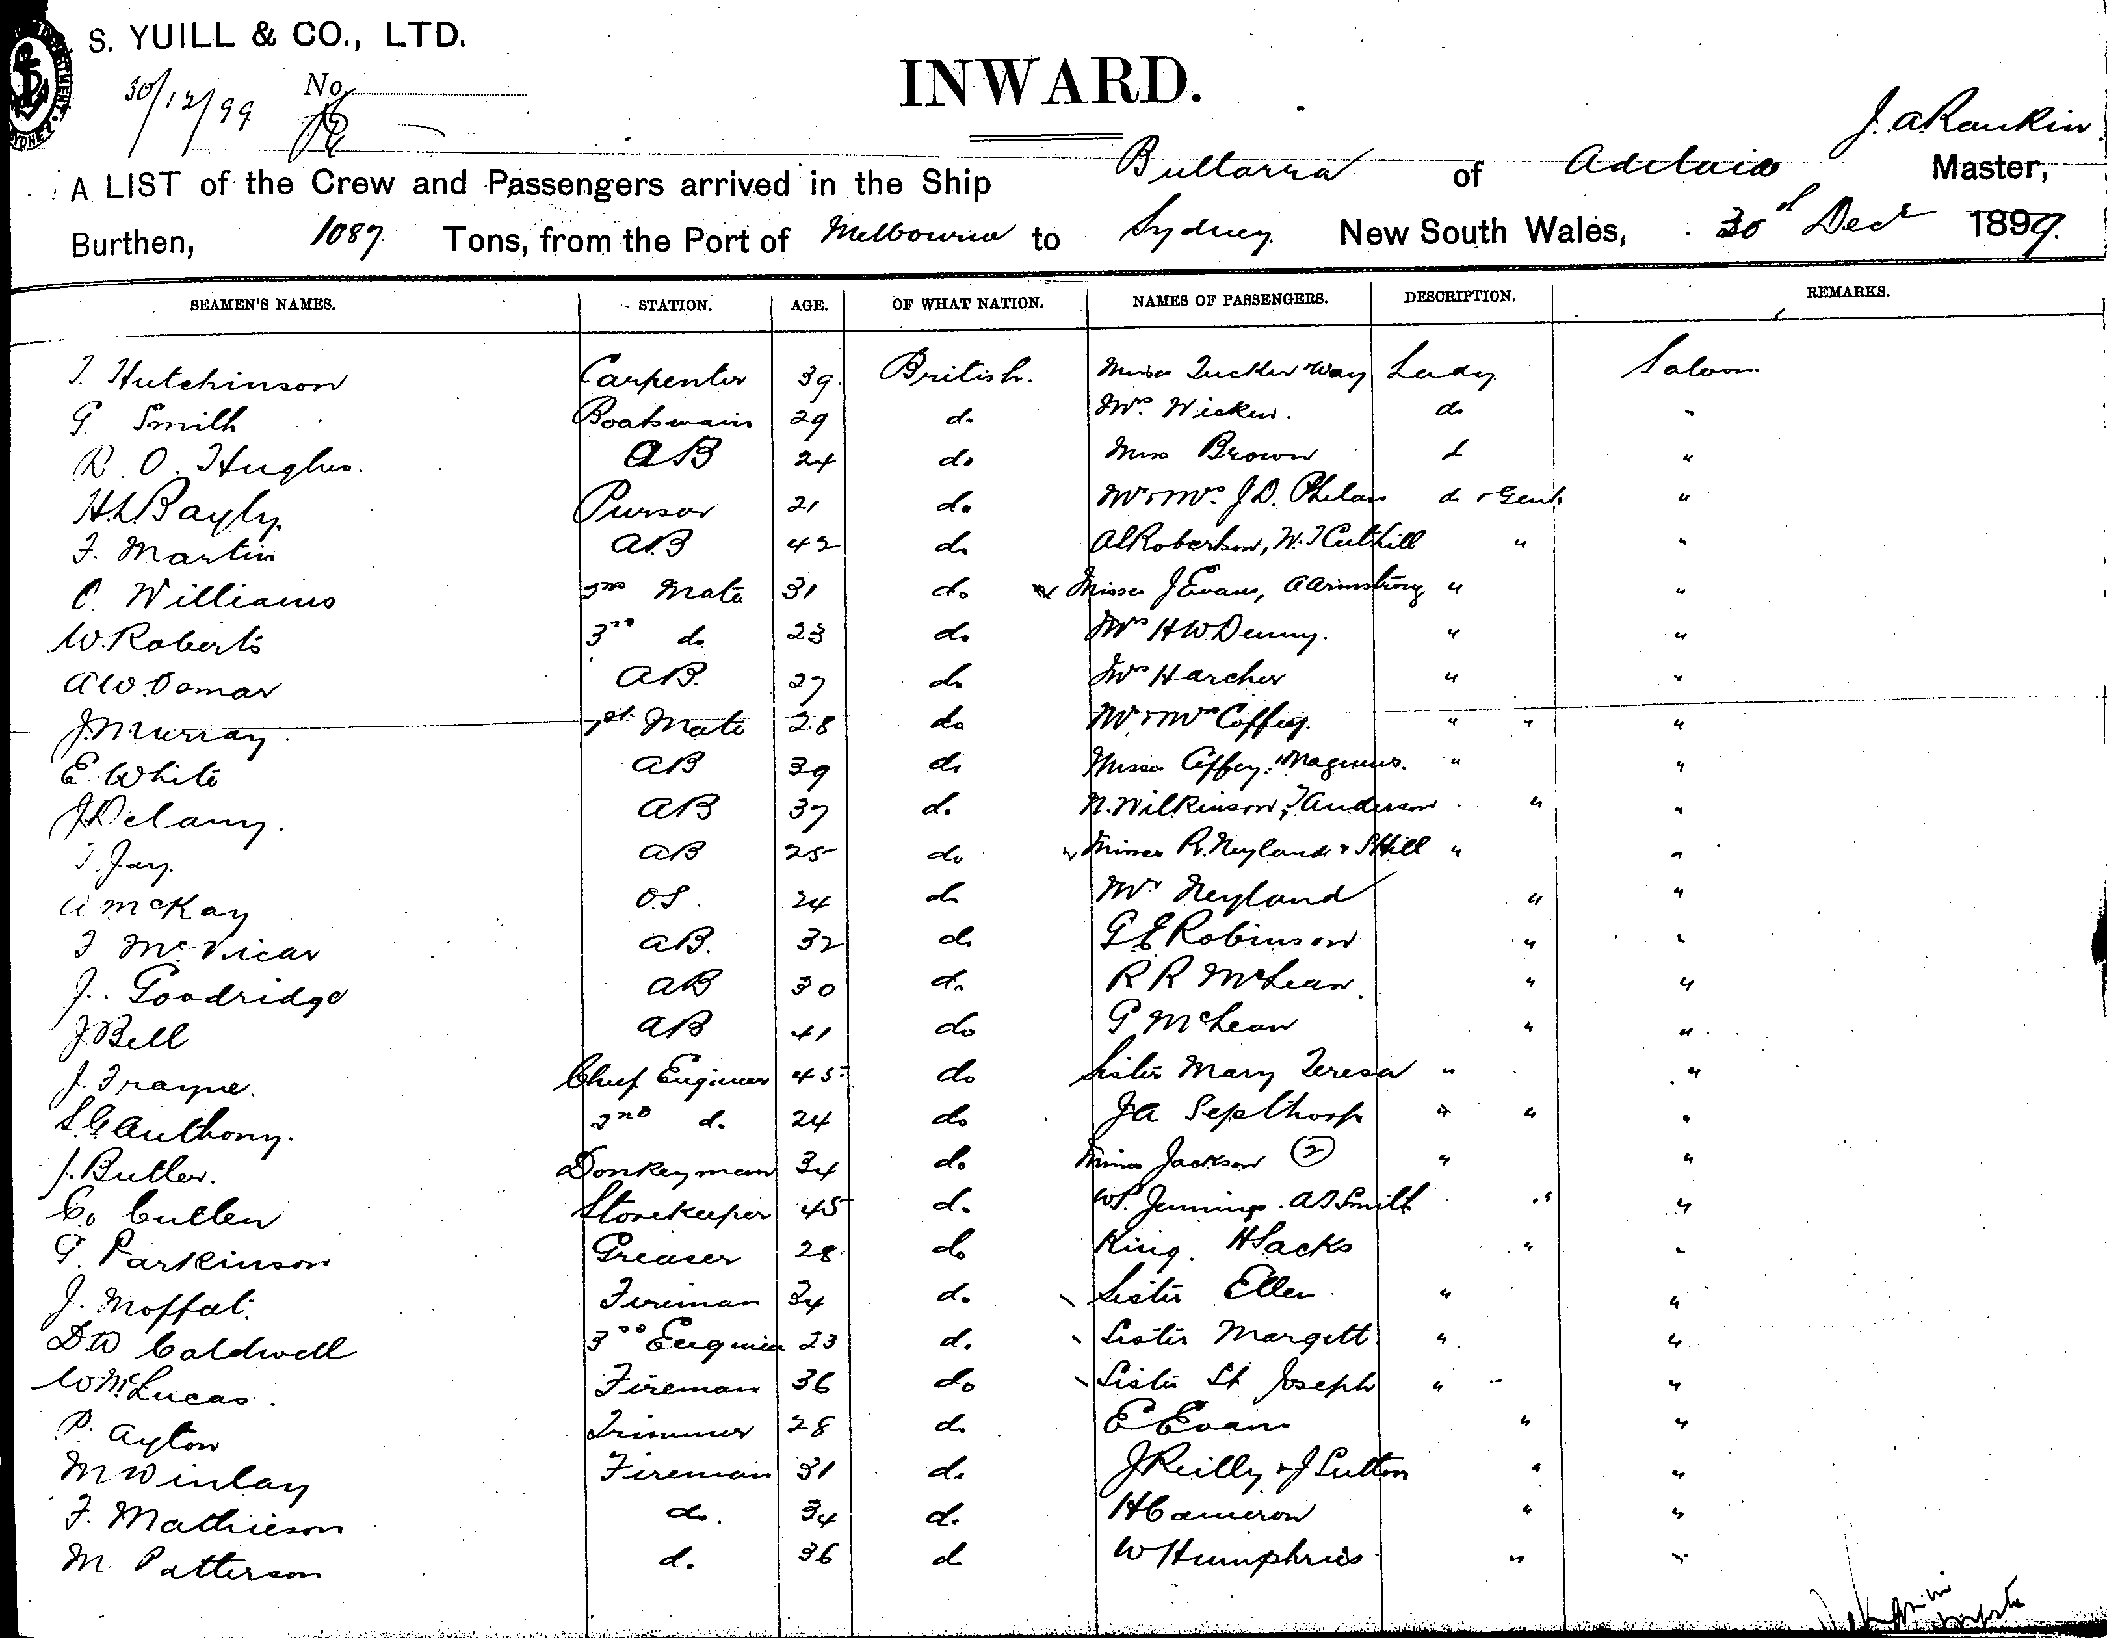 S. YUILL & CO., LTD.
30/12/99 No
INWARD.
J. A Rankin
A LIST of the Crew and Passengers arrived in the Ship Bullarra of Adelaide Master,
Burthen, 1087 Tons, from the Port of Melbourne to Sydney New South Wales, 30th Decr 1899.
SEAMEN'S NAMES. STATION. AGE. OF WHAT NATION. NAMES OF PASSENGERS. DESCRIPTION. REMARKS.
T. Hutchinson Carpenter 39 British. Misses Tucker & Way Lady Saloon
G Smith Boatswain 29 do Mrs. Wicken. do "
R. O. Hughes. AB 24 do Miss Brown d "
H L Bayly. Pursor 21 do Mr & Mrs. J. D. Phelan do & Gent "
F. Martin AB 42 do A L Robertson, W. T Cuthill " "
C. Williams 2nd Mate 31 do Misses J Evans, A Armstrong " "
W. Roberts 3rd do 23 do Mrs H W Denny. " "
A W. Oomar AB. 27 do Mrs Harcher " "
J. Murray 1st Mate 28 do Mr & Mrs Coffey. " " "
E. White AB 39 do Misses Coffey, Magnus. " "
J Delany. AB 37 do N. Wilkinson, T Anderson " "
T. Jay. AB 25 do Misses R. Neyland & S Hill " "
A McKay O.S. 24 do Mr Neyland " "
T McVicar AB. 32 do G E Robinson " "
J. Goodridge AB 30 do R R McLean. " "
J Bell AB 41 do G McLean " "
J. Trayne. Chief Engineer 45 do Sister Mary Teresa " "
S. G Anthony. 2nd do 24 do J A Septhorp " " "
J. Butler. Donkeyman 34 do Misses Jackson (2) " "
Co Cullen Storekeeper 45 do W S. Jennings. A B Smith " "
G. Parkinson Greaser 28 do King. H Sacks " "
J. Moffat. Fireman 34 do Sister Ellen " "
D W Caldwell 3rd Engineer 23 do Sister Margett " "
W McLucas. Fireman 36 do Sister St Joseph " "
P. Ayton Trimmer 28 do E Evans " "
M Winlay Fireman 31 do J Reilly & J Sutton " "
F. Mathieson do. 34 do H Cameron " "
M. Patterson d. 36 d W Humphries " "